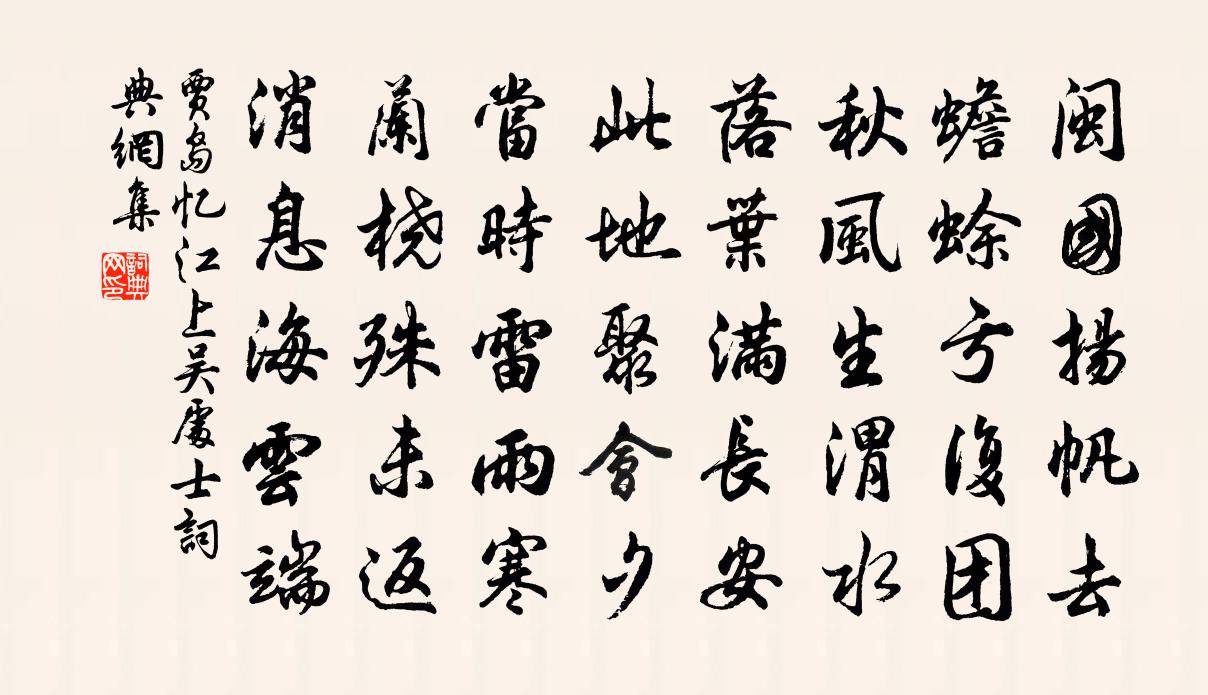 闽國揚帆去
蟾蜍亏復团
秋風生渭水
落葉滿長安
此地聚會夕
當時雷雨寒
蘭橈殊未返
消息海雲端
賈島忆江上吴處士詞
典網集
詞典
网印